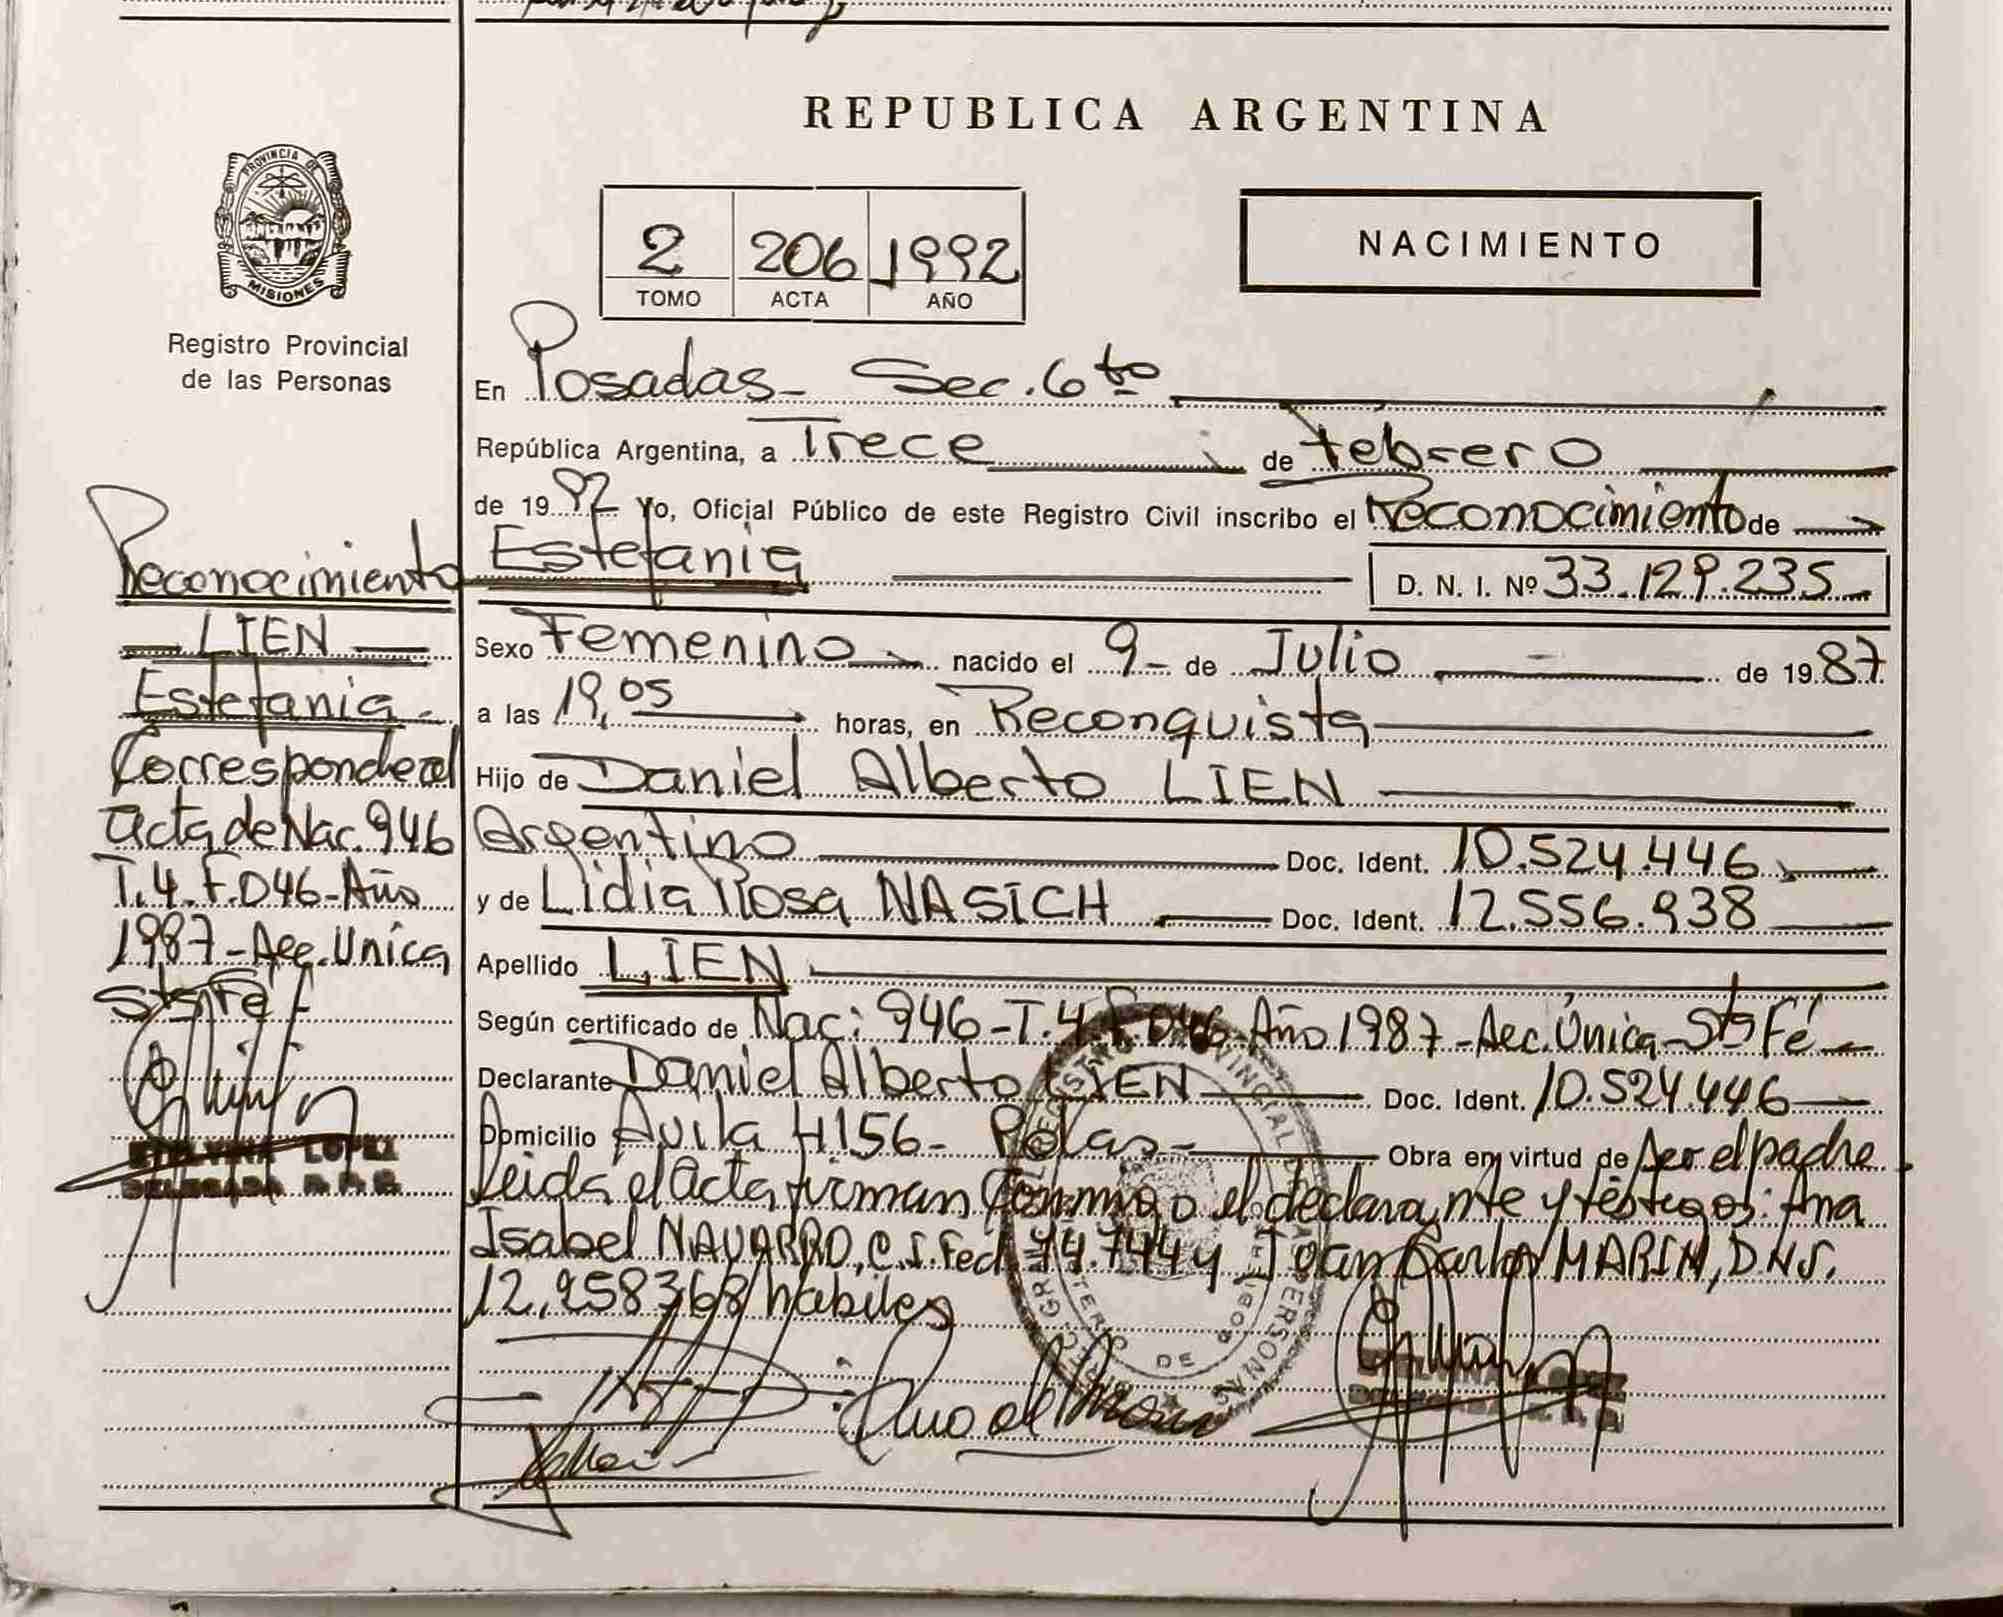 REPUBLICA ARGENTINA
PROVINCIA DE
MISIONES
Registro Provincial
de las Personas
2 206 1992
TOMO ACTA AÑO
NACIMIENTO
En Posadas - Sec. 6to
República Argentina, a Trece de Febrero
de 1992 Yo, Oficial Público de este Registro Civil inscribo el Reconocimiento de
Estefania D. N. I. Nº 33.129.235
Sexo Femenino nacido el 9 - de Julio de 1987
a las 19,05 horas, en Reconquista
Hijo de Daniel Alberto LIEN
Argentino Doc. Ident. 10.524.446
y de Lidia Rosa NASICH Doc. Ident. 12.556.938
Apellido LIEN
Según certificado de Nac: 946 - T. 4. F. 046 - Año 1987 - Sec. Única - Sta Fé
Declarante Daniel Alberto LIEN Doc. Ident. 10.524.446
Domicilio Avila 4156 - Pdas - Obra en virtud de ser el padre
Leida el acta firman conmigo el declarante y testigos: Ana
Isabel NAVARRO, C.I. Fed. y Juan Carlos MARIN, D.N.I.
12.958368 habiles
Reconocimiento
LIEN
Estefania -
Corresponde al
acta de Nac. 946
T. 4. F. 046 - Año
1987 - Sec. Unica
Sta Fé
ETELVINA LOPEZ
DELEGADA R. P. P.